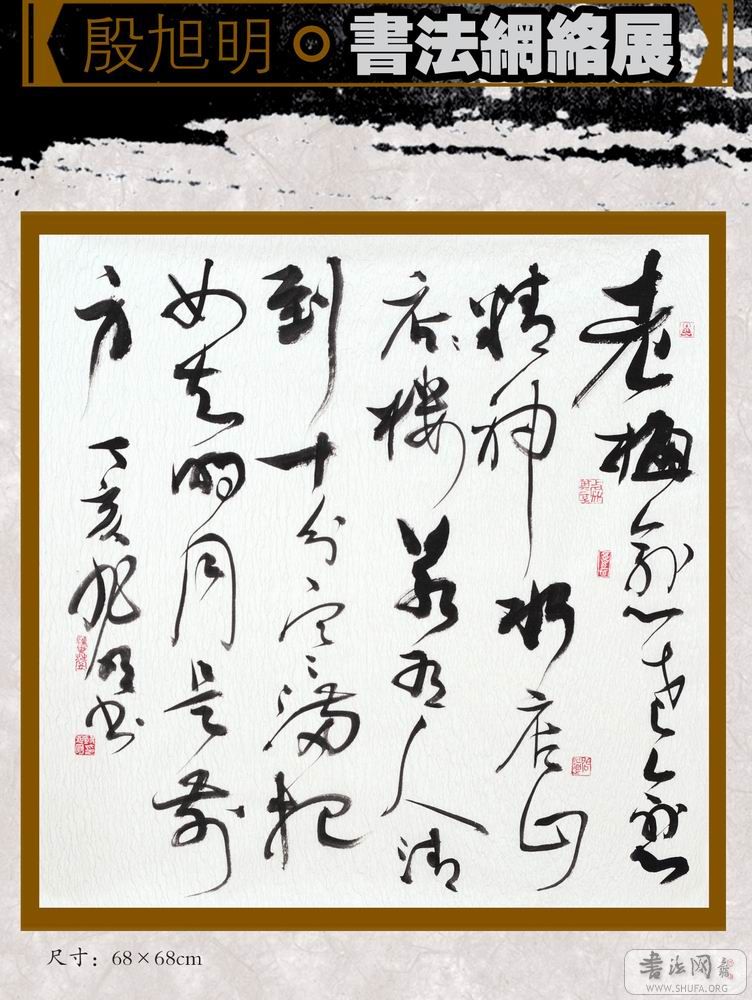 殷旭明○書法網絡展
老梅愈老愈
精神水店山
店楼若有人清
到十分寒满把
始知明月是前
身 丁亥旭明书
尺寸：68×68cm
書法网
WWW.SHUFA.ORG